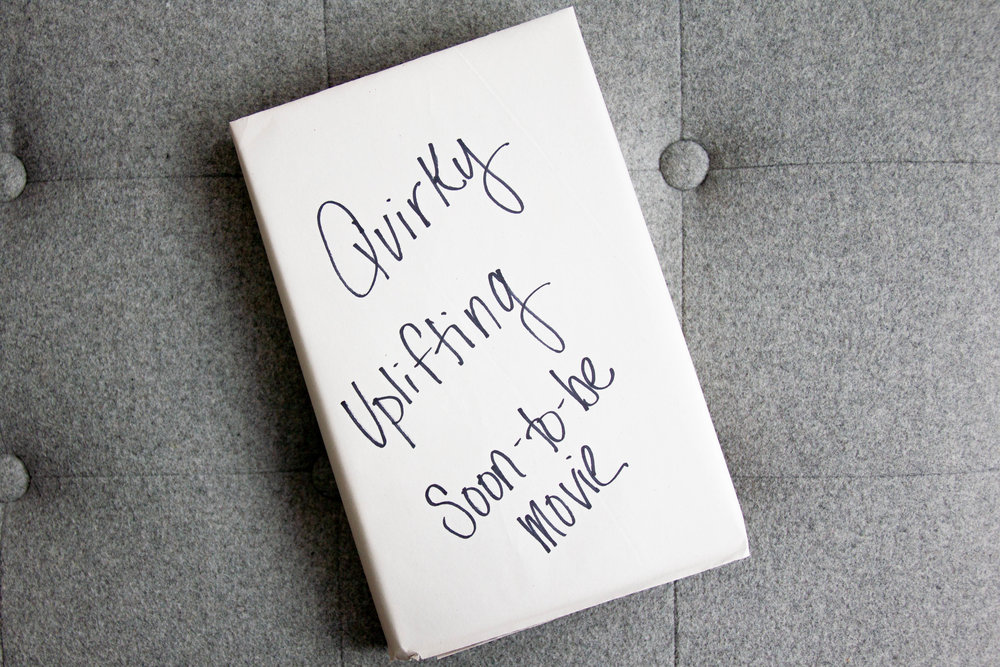 Quirky
Uplifting
Soon-to-be
movie